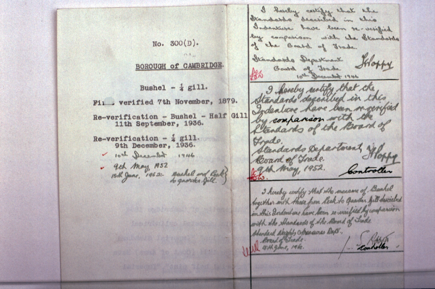 No. 300(D).
BOROUGH of CAMBRIDGE.
Bushel - ¼ gill.
verified 7th November, 1879.
Re-verification - Bushel - Half Gill
11th September, 1936.
Re-verification - ¼ gill.
9th December, 1936.
10th December 1946
9th May 1952
Bushel and
to quarter gill
I hereby certify that the
Standards described in this
Indenture have been re-verified
by comparison with the Standards
of the Board of Trade.
Standards Department
Board of Trade.
10th December 1946
I hereby certify that the
Standards described in this
Indenture have been re-verified
by comparison with the
Standards of the Board of
Trade.
Standards Department,
Board of Trade.
9th May, 1952.
Controller
I hereby certify that the measure of Bushel
together with those from Peck to Quarter Gill described
in this Indenture have been re-verified by comparison
with the Standards of the Board of Trade
Standard Weights & Measures Dept.
Board of Trade.
Controller